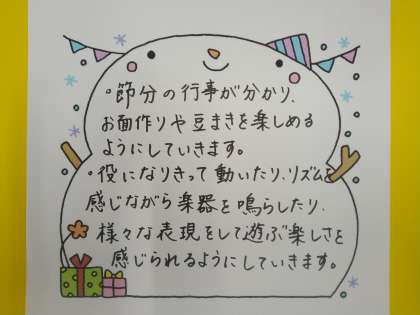 ・節分の行事が分かり、
お面作りや豆まきを楽しめる
ようにしていきます。
・役になりきって動いたり、リズムを
感じながら楽器を鳴らしたり、
様々な表現をして遊ぶ楽しさを
感じられるようにしていきます。